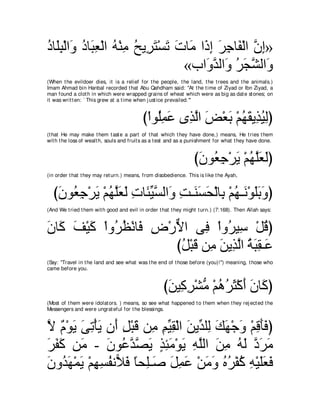 «إِنَّ الْفَاجِرَ إِذَا مَاتَ تَسْتَرِيحُ مِنْهُ الْعِبَادُ وَالْبِلَادُ
وَالشَّجَرُ وَالدَّوَابُ»
(When the evildoer dies, it is a relief for the people, the land, the trees and the animals.)
Ahmad bin Hanbal recorded that Abu Qahdham said: "At the time of Ziyad or Ibn Ziyad, a
man found a cloth in which were wrapped grains of wheat which were as big as date stones; on
it was written: `This grew at a time when justice prevailed.'"
(لِيُذِيقَهُمْ بَعْضَ الَّذِى عَمِلُواْ)
(that He may make them taste a part of that which they have done,) means, He tries them
with the loss of wealth, souls and fruits as a test and as a punishment for what they have done.
(لَعَلَّهُمْ يَرْجِعُونَ)
(in order that they may return.) means, from disobedience. This is like the Ayah,
(وَبَلَوْنَـهُمْ بِالْحَسَنَـتِ وَالسَّيِّئَاتِ لَعَلَّهُمْ يَرْجِعُونَ)
(And We tried them with good and evil in order that they might turn.) (7:168). Then Allah says:
(قُلْ سِيرُواْ فِى الاٌّرْضِ فَانْظُرُواْ كَيْفَ كَانَ
عَـقِبَةُ الَّذِينَ مِن قَبْلُ)
(Say: "Travel in the land and see what was the end of those before (you)!") meaning, those who
came before you.
(كَانَ أَكْثَرُهُمْ مُّشْرِكِينَ)
(Most of them were idolators. ) means, so see what happened to them when they rejected the
Messengers and were ungrateful for the blessings.
(فَأَقِمْ وَجْهَكَ لِلدِّينِ الْقَيِّمِ مِن قَبْلِ أَن يَأْتِىَ يَوْمٌ لاَّ
مَرَدَّ لَهُ مِنَ اللَّهِ يَوْمَئِذٍ يَصَّدَّعُونَ - مَن كَفَرَ
فَعَلَيْهِ كُفْرُهُ وَمَنْ عَمِلَ صَـلِحاً فَلاًّنفُسِهِمْ يَمْهَدُونَ